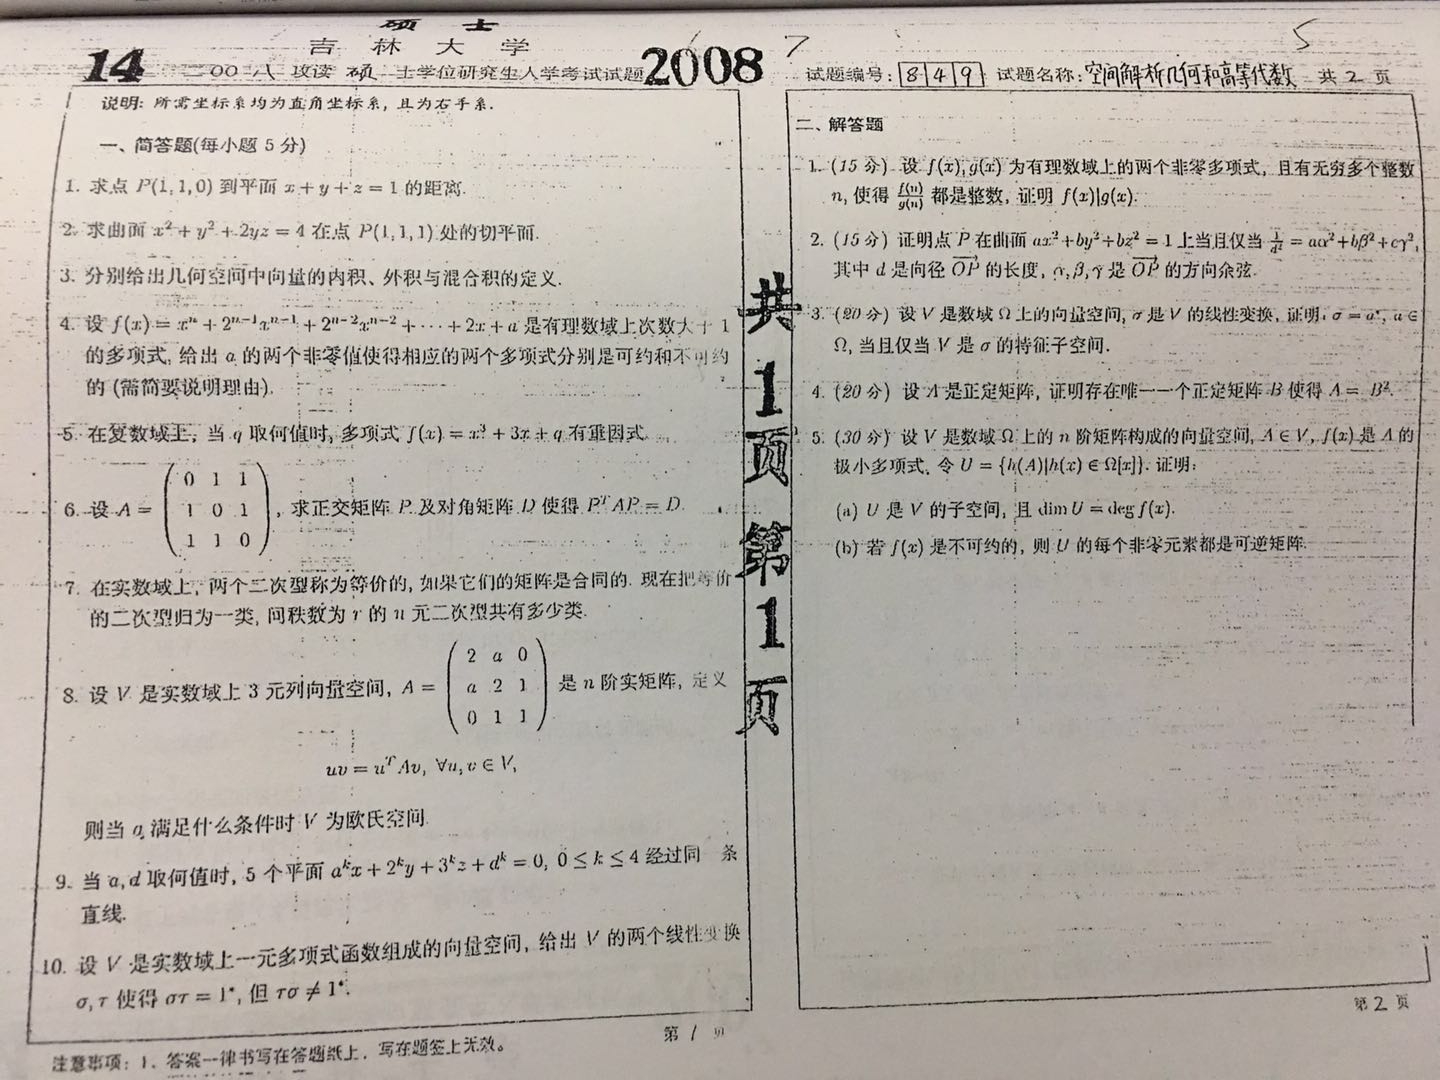 硕 士
吉 林 大 学
14 二00八 攻读 硕 士学位研究生入学考试试题 2008 7
5
试题编号: 849 试题名称: 空间解析几何和高等代数 共 2 页
说明: 所需坐标系均为直角坐标系, 且为右手系.
一、简答题(每小题 5 分)
1. 求点 P(1,1,0) 到平面 x + y + z = 1 的距离.
2. 求曲面 x² + y² + 2yz = 4 在点 P(1,1,1) 处的切平面.
3. 分别给出几何空间中向量的内积、外积与混合积的定义.
4. 设 f(x) = xⁿ + 2ⁿ⁻¹xⁿ⁻¹ + 2ⁿ⁻²xⁿ⁻² + ⋯ + 2x + a 是有理数域上次数大于 1
的多项式, 给出 a 的两个非零值使得相应的两个多项式分别是可约和不可约
的 (需简要说明理由).
5. 在复数域上, 当 q 取何值时, 多项式 f(x) = x³ + 3x + q 有重因式.
6. 设 A = ( 0 1 1
1 0 1
1 1 0 ), 求正交矩阵 P 及对角矩阵 D 使得 PᵀAP = D.
7. 在实数域上, 两个二次型称为等价的, 如果它们的矩阵是合同的. 现在把等价
的二次型归为一类, 问秩数为 r 的 n 元二次型共有多少类.
8. 设 V 是实数域上 3 元列向量空间, A = ( 2 a 0
a 2 1
0 1 1 ) 是 n 阶实矩阵, 定义
uv = uᵀAv, ∀u, v ∈ V,
则当 a 满足什么条件时 V 为欧氏空间.
9. 当 a, d 取何值时, 5 个平面 aᵏx + 2ᵏy + 3ᵏz + dᵏ = 0, 0 ≤ k ≤ 4 经过同一条
直线.
10. 设 V 是实数域上一元多项式函数组成的向量空间, 给出 V 的两个线性变换
σ, τ 使得 στ = 1*, 但 τσ ≠ 1*.
第 1 页
注意事项: 1、答案一律书写在答题纸上, 写在题签上无效。
共
1
页
第
1
页
二、解答题
1. (15 分) 设 f(x), g(x) 为有理数域上的两个非零多项式, 且有无穷多个整数
n, 使得 f(n)/g(n) 都是整数, 证明 f(x)|g(x).
2. (15 分) 证明点 P 在曲面 ax² + by² + bz² = 1 上当且仅当 1/d² = aα² + bβ² + cγ²,
其中 d 是向径 OP 的长度, α, β, γ 是 OP 的方向余弦.
3. (20 分) 设 V 是数域 Ω 上的向量空间, σ 是 V 的线性变换, 证明: σ = a*, a ∈
Ω, 当且仅当 V 是 σ 的特征子空间.
4. (20 分) 设 A 是正定矩阵, 证明存在唯一一个正定矩阵 B 使得 A = B².
5. (30 分) 设 V 是数域 Ω 上的 n 阶矩阵构成的向量空间, A ∈ V, f(x) 是 A 的
极小多项式. 令 U = {h(A)|h(x) ∈ Ω[x]}. 证明:
(a) U 是 V 的子空间, 且 dim U = deg f(x).
(b) 若 f(x) 是不可约的, 则 U 的每个非零元素都是可逆矩阵.
第 2 页